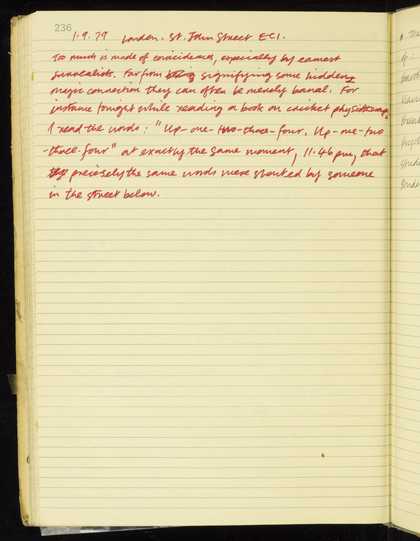 236
1.9.79 London. St. John Street EC1.
Too much is made of coincidence, especially by earnest
surrealists. Far from signifying some hidden
magic connection they can often be merely banal. For
instance tonight while reading a book on cricket
I read the words: "Up-one-two-three-four, Up-one-two
-three-four" at exactly the same moment, 11.46 pm, that
precisely the same words were shouted by someone
in the street below.